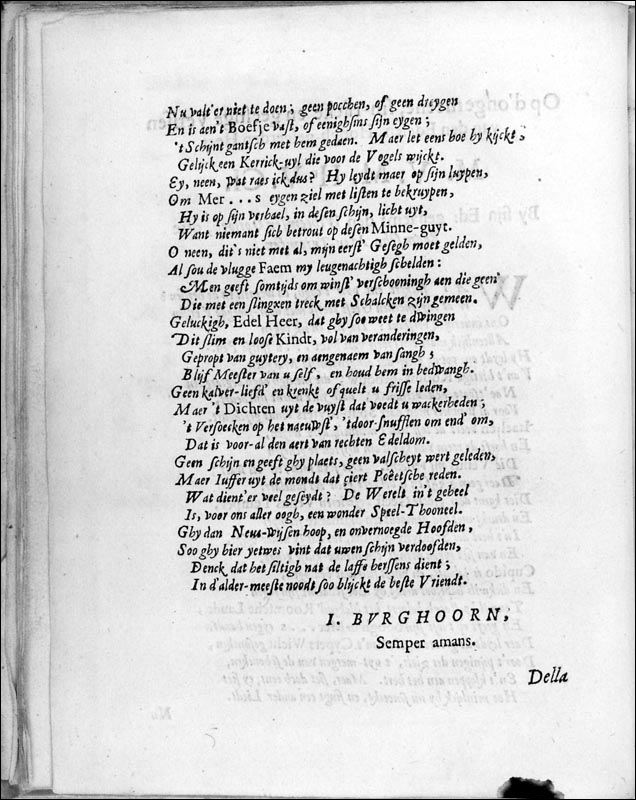 Nu valt'er niet te doen; geen pocchen, of geen dreygen
En is aen't Boefje vast, of eenighsins sijn eygen;
't Schijnt gantsch met hem gedaen. Maer let eens hoe hy kijckt,
Gelijck een Kerrick-uyl die voor de Vogels wijckt.
Ey, neen, wat raes ick dus? Hy leydt maer op sijn luypen,
Om Mer...s eygen ziel met listen te bekruypen,
Hy is op sijn verhael, in desen schijn, licht uyt,
Want niemant sich betrout op desen Minne-guyt.
O neen, dit's niet met al, mijn eerst' Gesegh moet gelden,
Al sou de vlugge Faem my leugenachtigh schelden:
Men geeft somtijds om winst' verschooningh aen die geen'
Die met een slingxen treck met Schalcken zijn gemeen.
Geluckigh, Edel Heer, dat ghy soo weet te dwingen
Dit slim en loose Kindt, vol van veranderingen,
Gepropt van guytery, en aengenaem van sangh;
Blijf Meester van u self, en houd hem in bedwangh.
Geen kalver-liefd' en krenkt of quelt u frisse leden,
Maer 't Dichten uyt de vuyst dat voedt u wackerheden;
't Versoecken op het naeuwst', 'tdoor-snufflen om end' om,
Dat is voor-al den aert van rechten Edeldom.
Geen schijn en geeft ghy plaets, geen valscheyt wert geleden,
Maer Iuffer uyt de mondt dat çiert Poëtsche reden.
Wat dient'er veel geseydt? De Werelt in't geheel
Is, voor ons aller oogh, een wonder Speel-Thooneel.
Ghy dan Neus-wijsen hoop, en onvernoegde Hoofden,
Soo ghy hier yetwes vint dat uwen schijn verdoofden,
Denck dat het siltigh nat de laffe herssens dient;
In d'alder-meeste noodt soo blijckt de beste Vriendt.
I. BVRGHOORN,
Semper amans.
Della